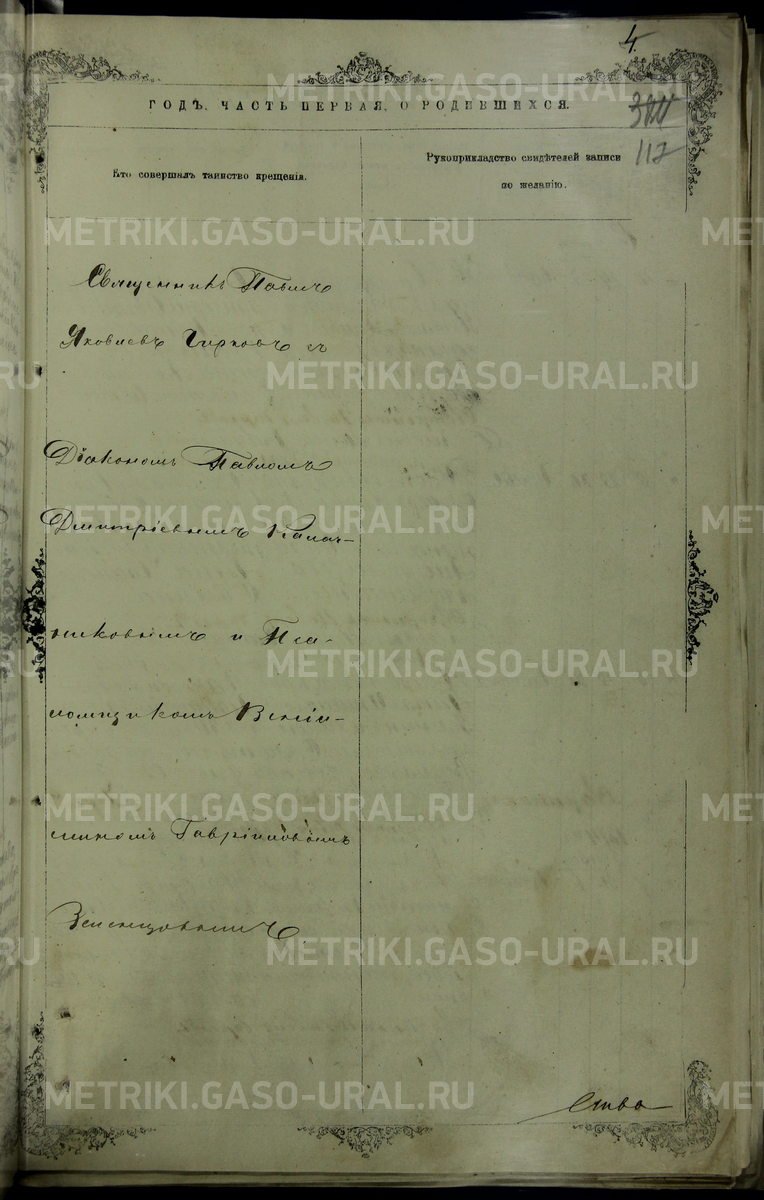 4.
112
ГОДЪ. ЧАСТЬ ПЕРВАЯ. О РОДИВШИХСЯ.
Кто совершалъ таинство крещенія.
Рукоприкладство свидѣтелей записи
по желанію.
Священникъ Павелъ
Яковлевъ Чирковъ съ
Діакономъ Павломъ
Дмитріевымъ Калач-
никовымъ и Пса-
ломщикомъ Веніа-
миномъ Гавріиловымъ
Земенцовымъ
METRIKI.GASO-URAL.RU